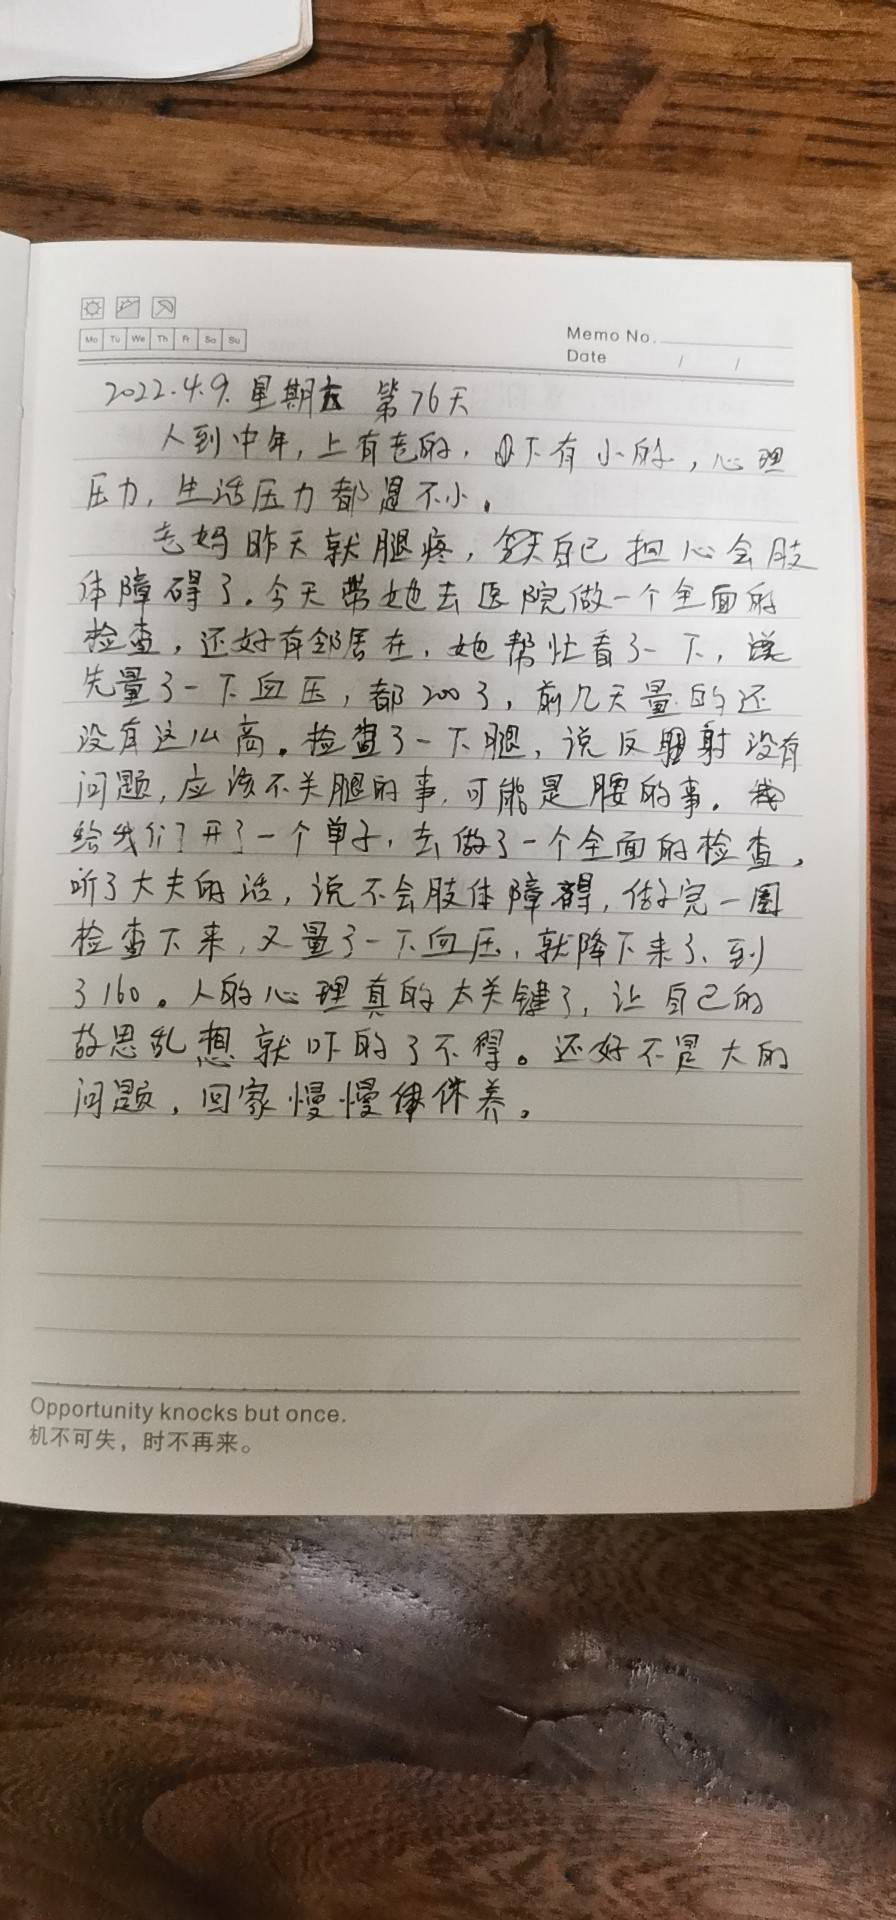 Mo Tu We Th Fr Sa Su
Memo No.
Date / /
2022.4.9. 星期六 第76天
人到中年，上有老的，下有小的，心理
压力，生活压力都是不小。
老妈昨天就腿疼，自己担心会肢
体障碍了。今天带她去医院做一个全面的
检查，还好有邻居在，她帮忙看了一下，说
先量了一下血压，都200了，前几天量的还
没有这么高。检查了一下腿，说反射没有
问题，应该不关腿的事，可能是腰的事。
给我们开了一个单子，去做了一个全面的检查，
听了大夫的话，说不会肢体障碍，做完一圈
检查下来，又量了一下血压，就降下来了、到
了160。人的心理真的太关键了，让自己的
故思乱想就吓的了不得。还好不是大的
问题，回家慢慢休养。
Opportunity knocks but once.
机不可失，时不再来。